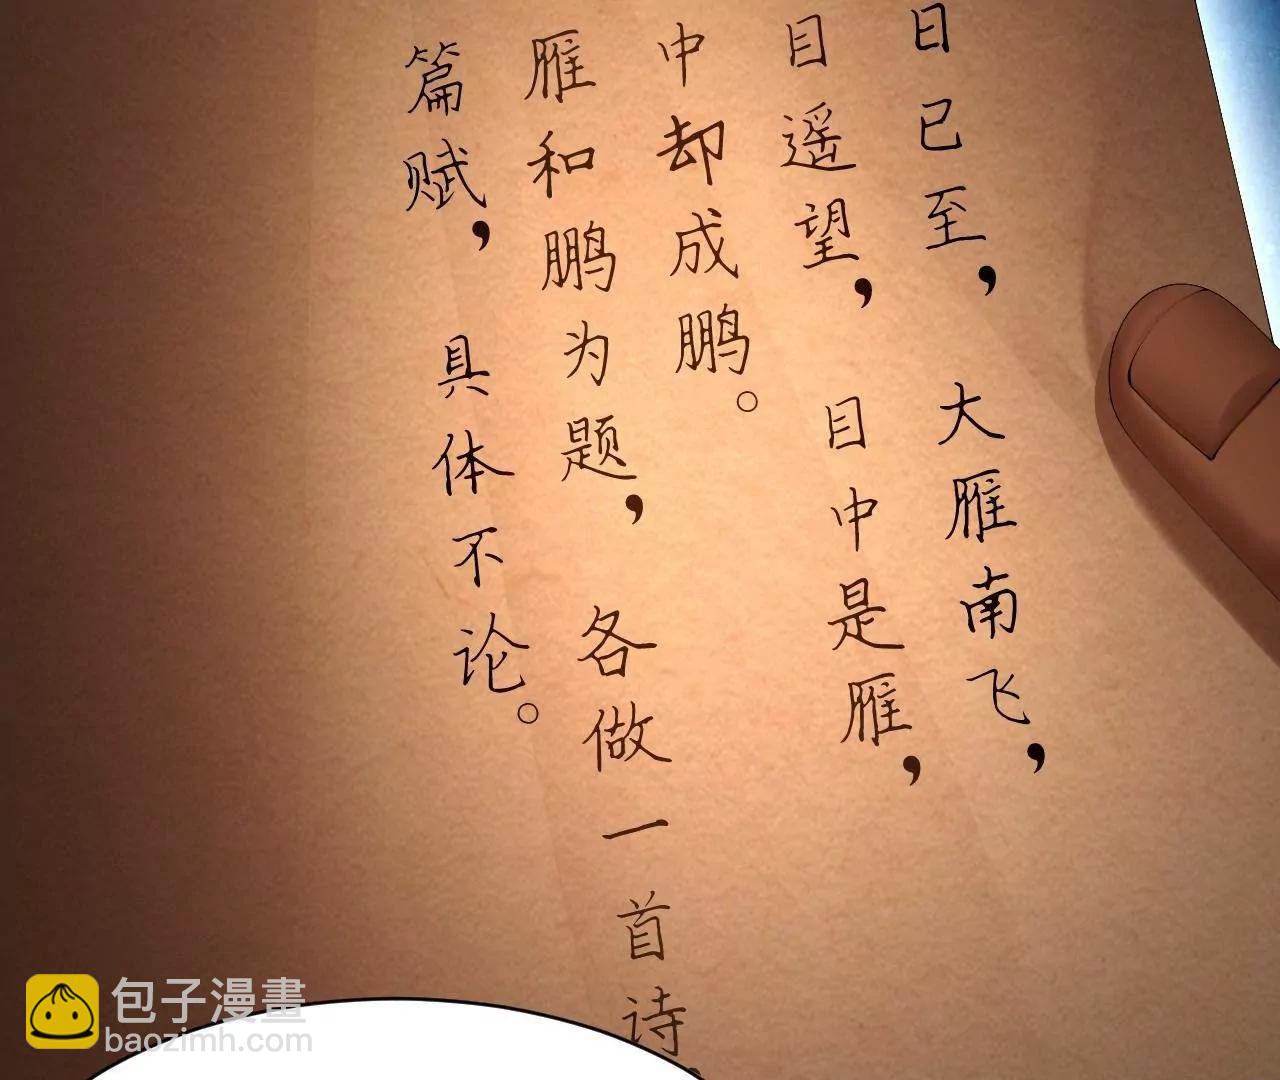 日已至，大雁南飞，
目遥望，目中是雁，
中却成鹏。
雁和鹏为题，各做一首诗
篇赋，具体不论。
包子漫畫
baozimh.com